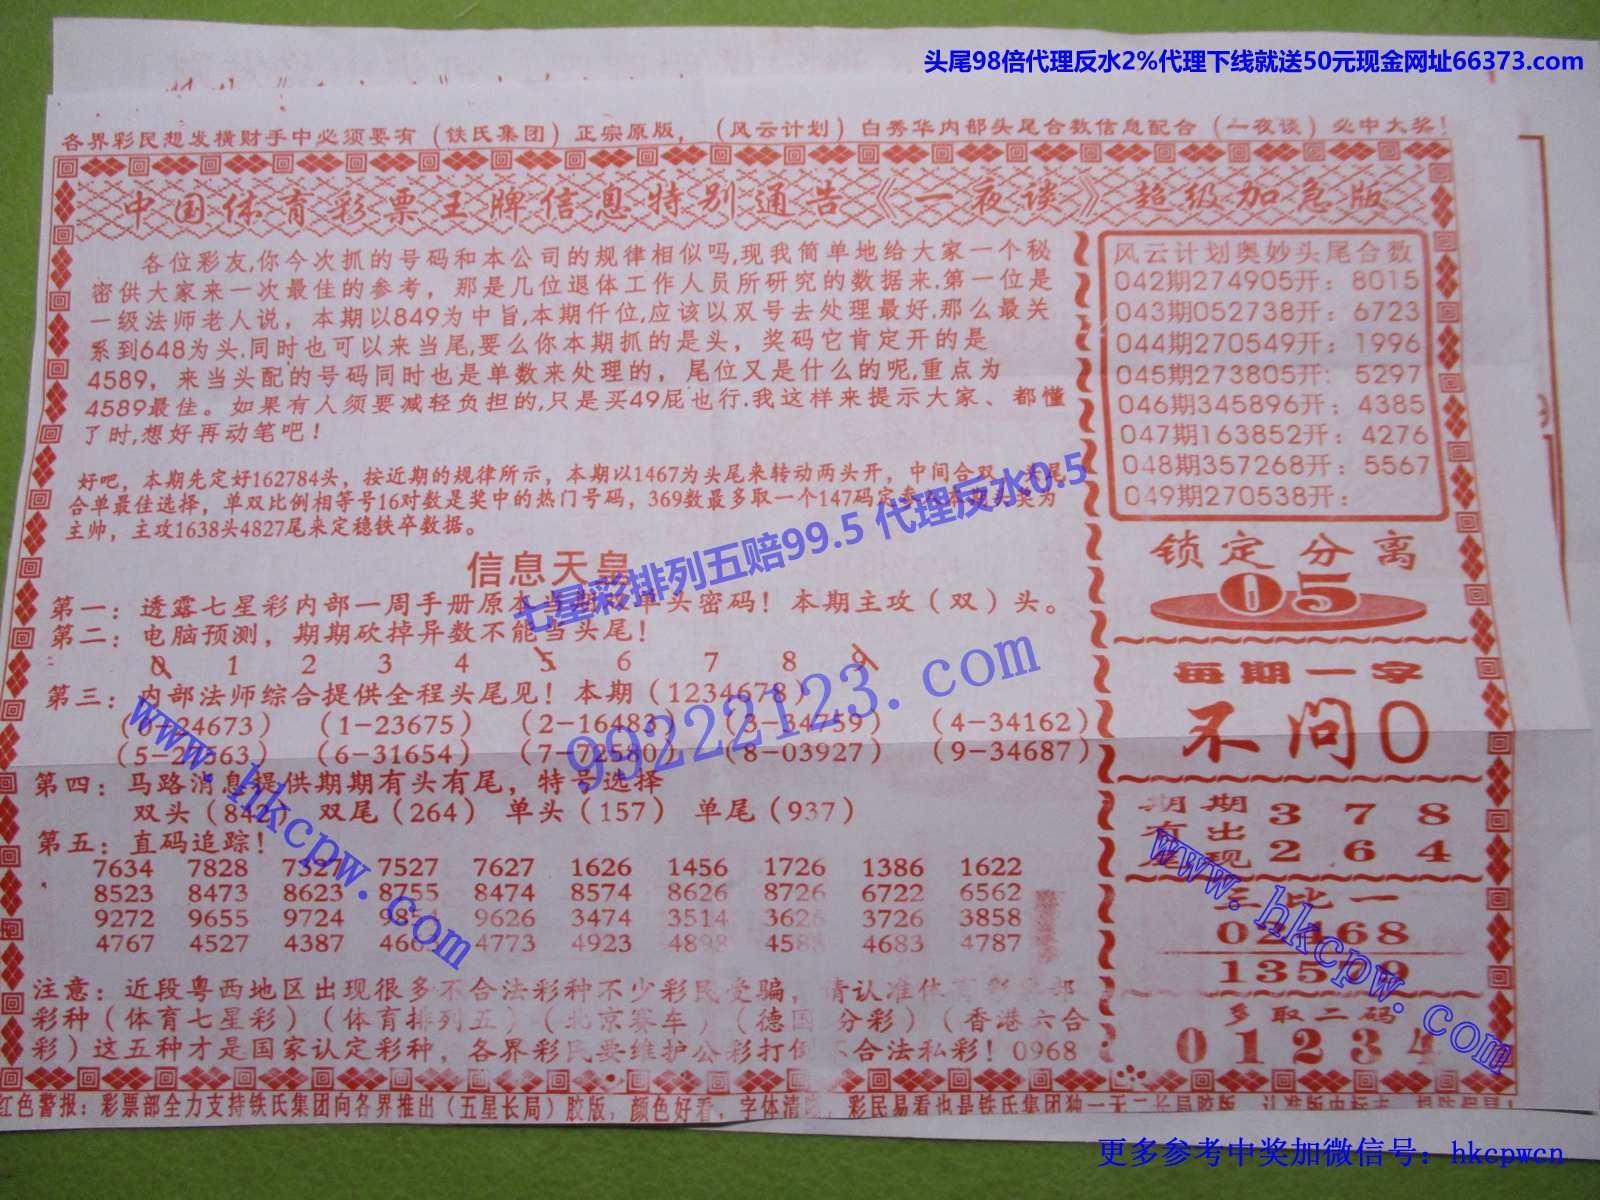 头尾98倍代理反水2%代理下线就送50元现金网址66373.com
各界彩民想发横财手中必须要有（铁氏集团）正宗原版，（风云计划）白秀华内部头尾合数信息配合（一夜谈）必中大奖！
中国体育彩票王牌信息特别通告《一夜谈》超级加急版
各位彩友,你今次抓的号码和本公司的规律相似吗,现我简单地给大家一个秘
密供大家来一次最佳的参考，那是几位退体工作人员所研究的数据来.第一位是
一级法师老人说，本期以849为中旨,本期仟位,应该以双号去处理最好.那么最关
系到648为头.同时也可以来当尾,要么你本期抓的是头，奖码它肯定开的是
4589，来当头配的号码同时也是单数来处理的，尾位又是什么的呢,重点为
4589最佳。如果有人须要减轻负担的,只是买49屁也行.我这样来提示大家、都懂
了时,想好再动笔吧！
好吧，本期先定好162784头，按近期的规律所示，本期以1467为头尾来转动两头开，中间合双，头尾
合单最佳选择，单双比例相等号16对数是奖中的热门号码，369数最多取一个147码定 为
主帅，主攻1638头4827尾来定稳铁卒数据。
信息天皇
第一：透露七星彩内部一周手册原本当期双单头密码！本期主攻（双）头。
第二：电脑预测，期期砍掉异数不能当头尾！
0 1 2 3 4 5 6 7 8 9
第三：内部法师综合提供全程头尾见！本期（1234678）
（0-24673） （1-23675） （2-16483） （3-34759） （4-34162）
（5-27563） （6-31654） （7-72580） （8-03927） （9-34687）
第四：马路消息提供期期有头有尾，特号选择
双头（842） 双尾（264） 单头（157） 单尾（937）
第五：直码追踪！
7634 7828 7327 7527 7627 1626 1456 1726 1386 1622
8523 8473 8623 8755 8474 8574 8626 8726 6722 6562
9272 9655 9724 9626 3474 3514 3626 3726 3858
4767 4527 4387 4773 4923 4898 4588 4683 4787
注意：近段粤西地区出现很多不合法彩种不少彩民受骗，请认准体育彩票部
彩种（体育七星彩）（体育排列五）（北京赛车）（德国 分彩）（香港六合
彩）这五种才是国家认定彩种，各界彩民要维护公彩打倒不合法私彩！0968
风云计划奥妙头尾合数
042期274905开：8015
043期052738开：6723
044期270549开：1996
045期273805开：5297
046期345896开：4385
047期163852开：4276
048期357268开：5567
049期270538开：
锁定分离
05
每期一字
不问0
期期 3 7 8
有出
尾现 2 6 4
三比一
02468
13579
多取二码
01234
红色警报：彩票部全力支持铁氏集团向各界推出（五星长局）胶版，颜色好看，字体清晰，彩民易看也是铁氏集团独一无二长局胶版，
七星彩排列五赔99.5 代理反水0.5
99222123.com
www.hkcpw.com
www.hkcpw.com
更多参考中奖加微信号：hkcpwcn